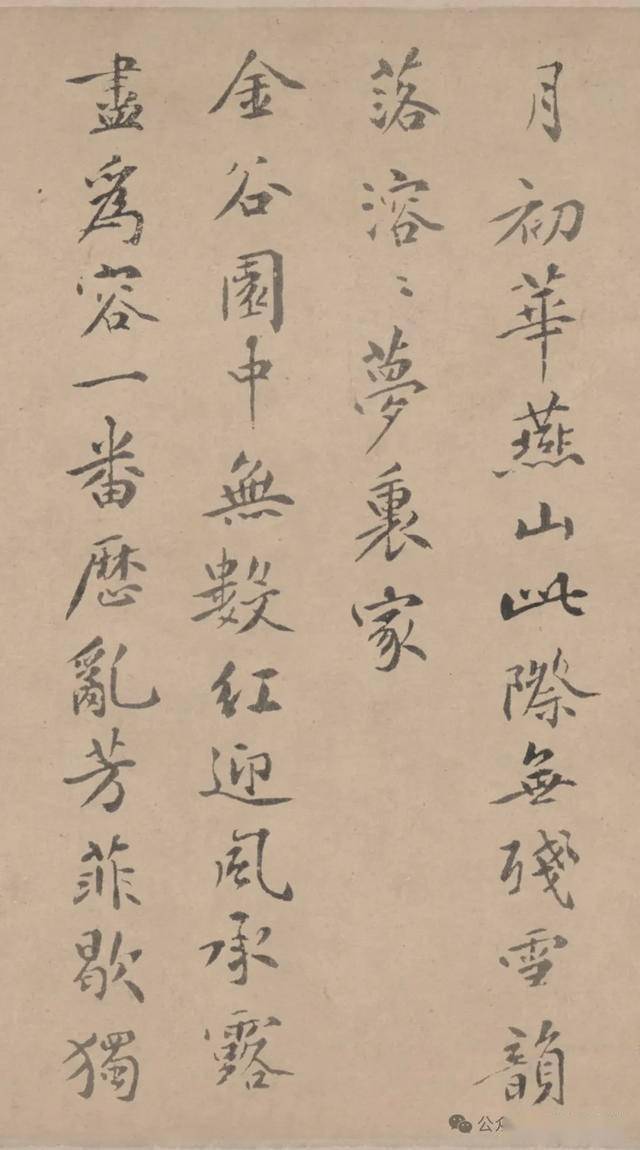 月初華燕山此際無殘雪韻
落溶〻夢裏家
金谷園中無數紅迎風承露
盡爲容一番歷亂芳菲歇獨
公众